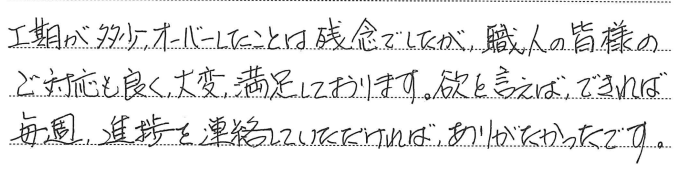 工期が多少、オーバーしたことは残念でしたが、職人の皆様の
ご対応も良く、大変、満足しております。欲を言えば、できれば
毎週、進捗を連絡していただければ、ありがたかったです。